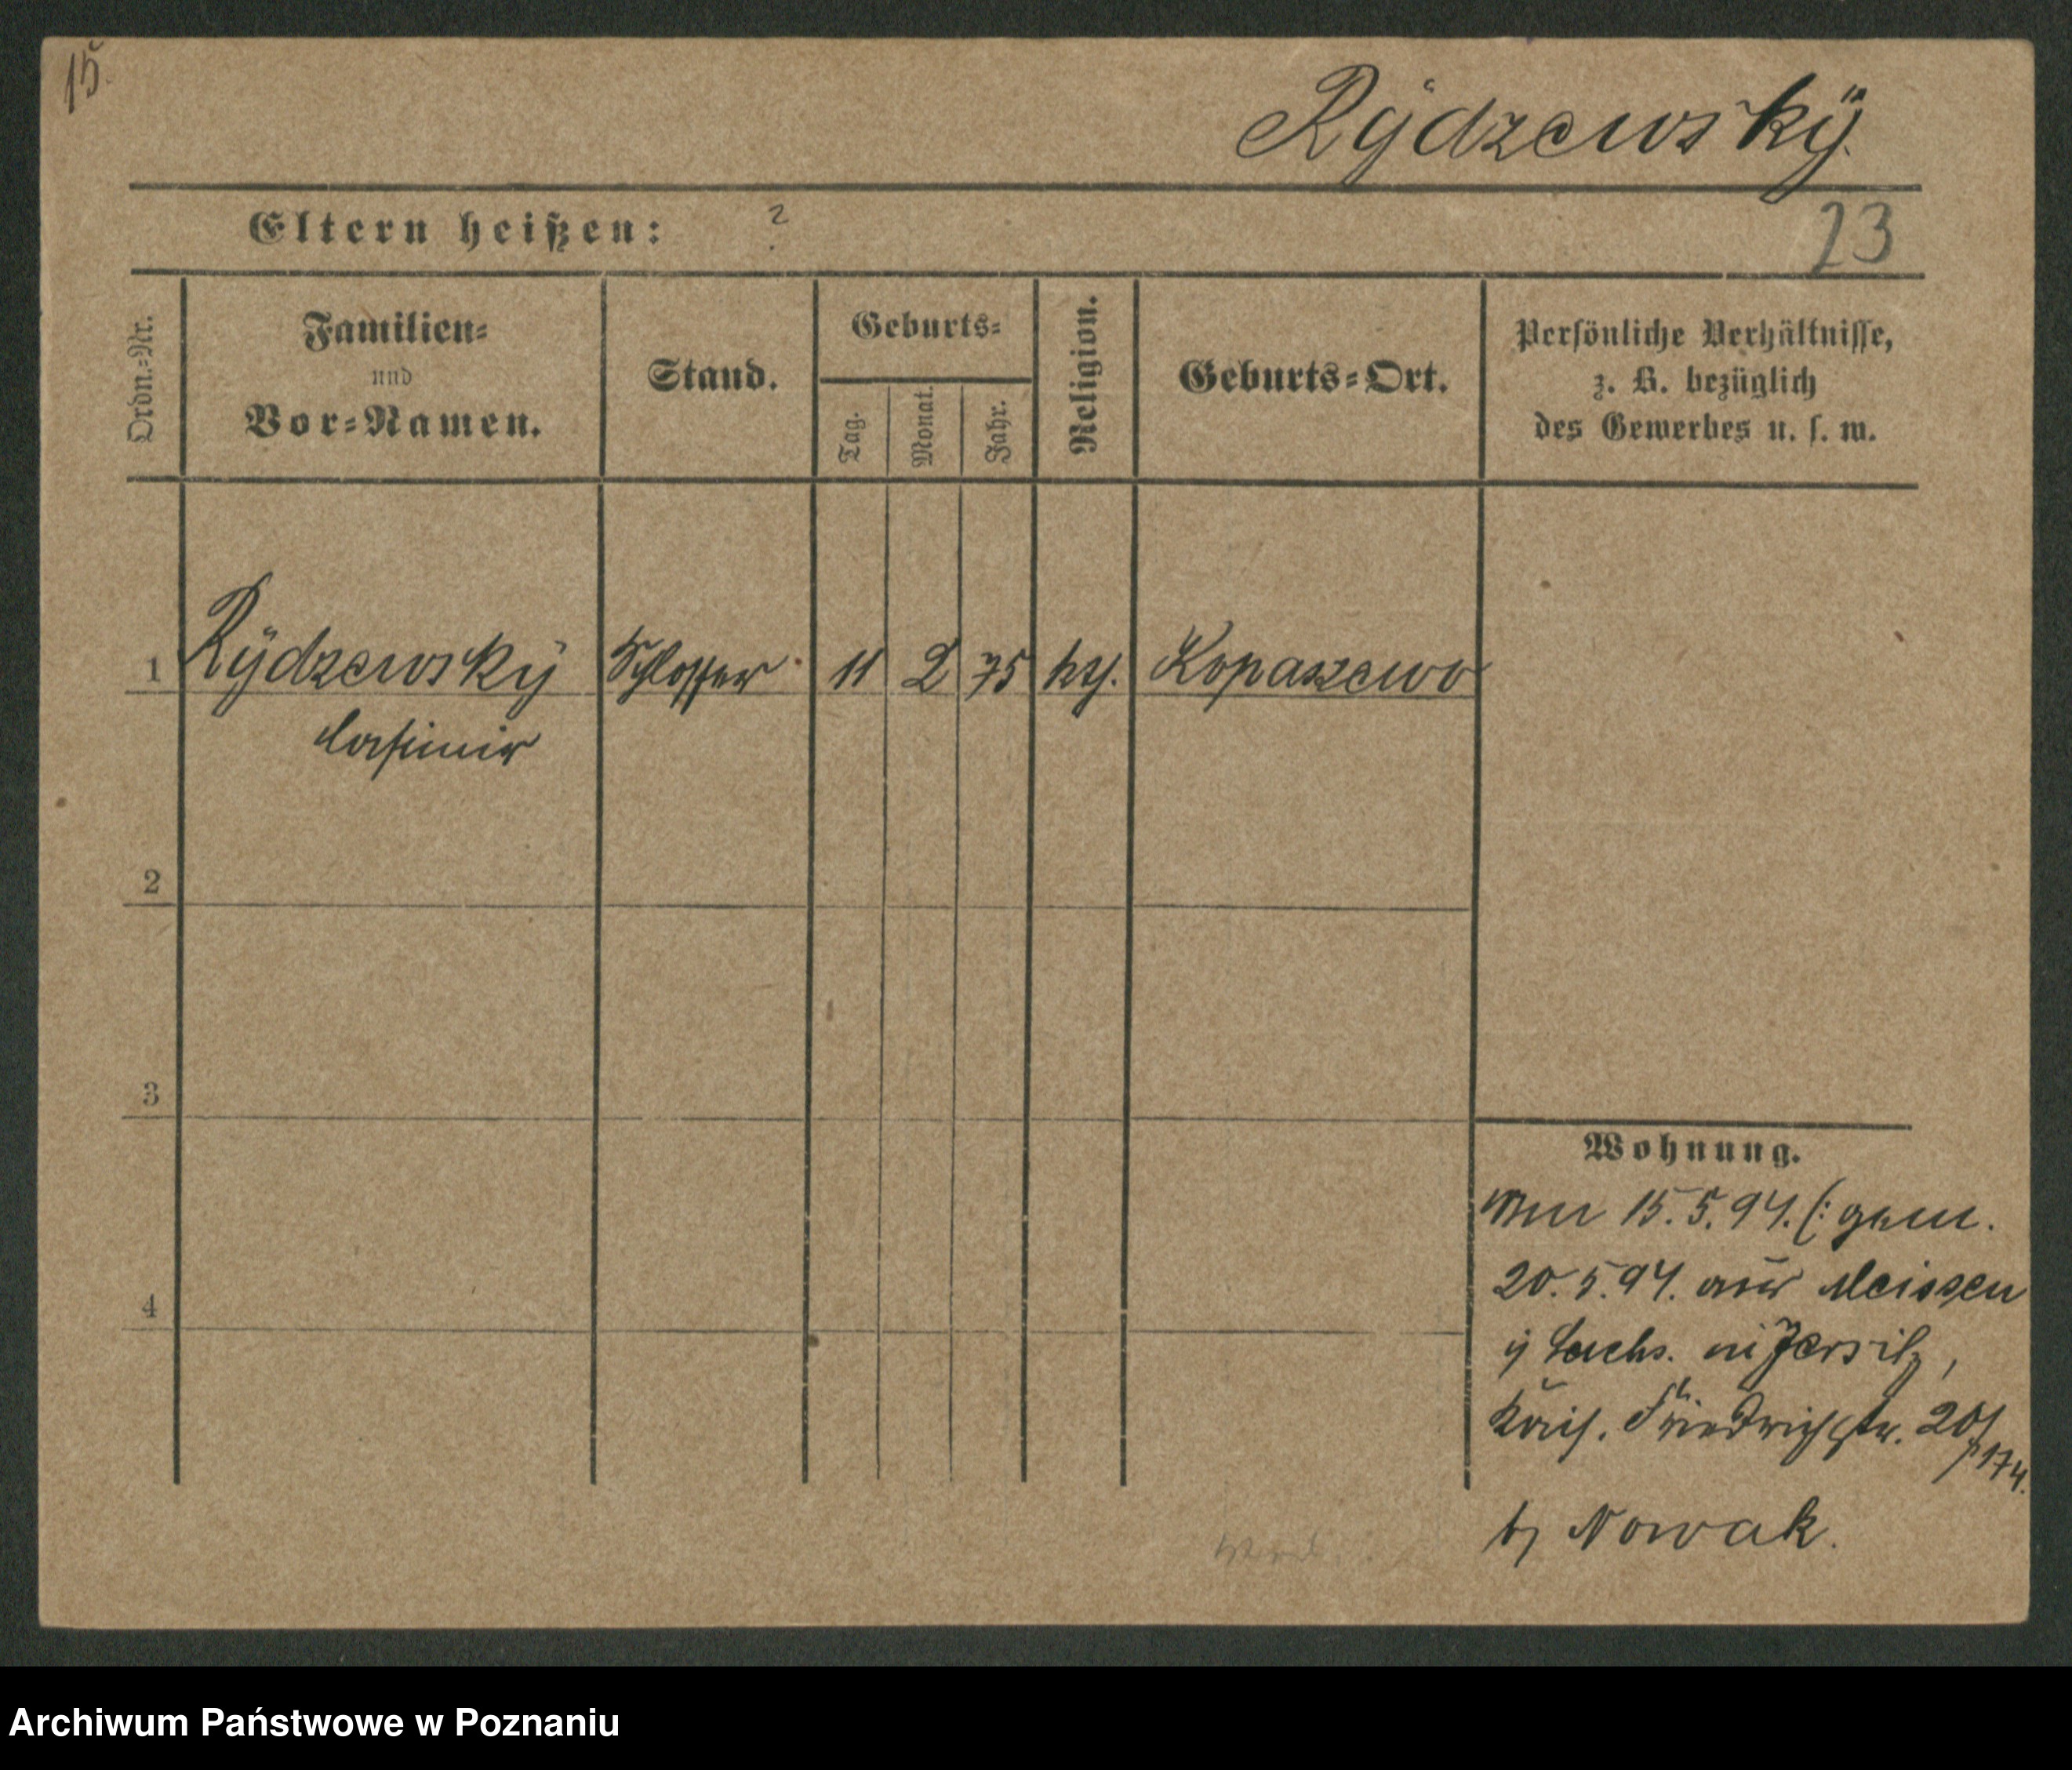 15.
Rÿdzewskÿ.
Eltern heißen: ?
23
Ordn.-Nr.
Familien-
und
Vor-Namen.
Stand.
Geburts-
Tag.
Monat.
Jahr.
Religion.
Geburts-Ort.
Persönliche Verhältnisse,
z. B. bezüglich
des Gewerbes u. s. w.
1 Rÿdzewskÿ Schlosser 11 2 75 kth. Kopaszewo
Casimir
2
3
4
Wohnung.
15.5.94. (: gem.
20.5.94. aus Meissen
Sachs. in Jersitz,
Kais. Friedrichstr. 20/
174.
b/ Nowak.
Archiwum Państwowe w Poznaniu